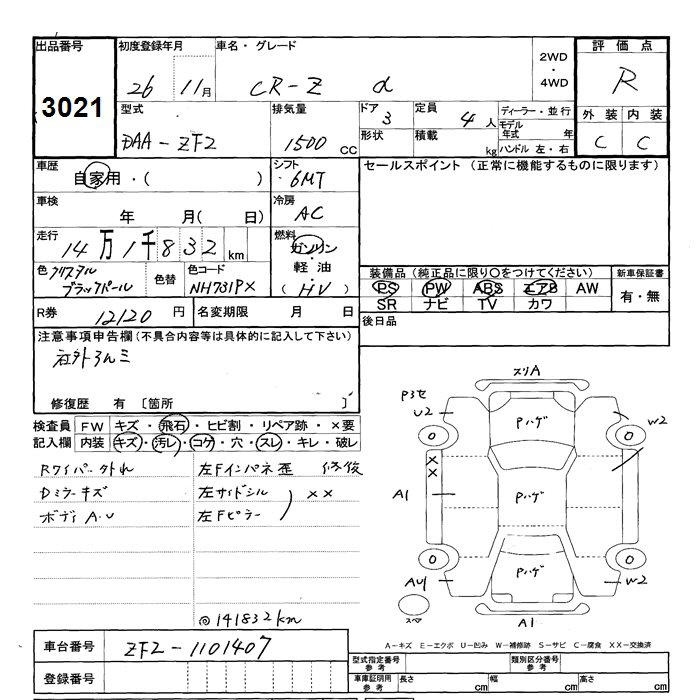 出品番号 初度登録年月 車名・グレード 2WD・4WD 評価点
3021 26 11月 CR-Z α R
型式 排気量 ドア 3 定員 4人 ディーラー・並行 外装 内装
DAA-ZF2 1500 CC 形状 積載 kg モデル年式 年 C C
ハンドル 左・右
車歴 自家用・( ) シフト 6MT セールスポイント (正常に機能するものに限ります)
車検 年 月( 日) 冷房 AC
走行 14万1千832km 燃料 ガソリン・軽油 (HV)
色 クリスタルブラックパール 色替 色コード NH731PX
装備品(純正品に限り○をつけてください) 新車保証書
PS PW ABS エアB AW 有・無
SR ナビ TV カワ
R券 12120円 名変期限 月 日 後日品
注意事項申告欄(不具合内容等は具体的に記入して下さい)
社外アルミ
修復歴 有 [箇所 ]
検査員記入欄 FW キズ・飛石・ヒビ割・リペア跡・×要
内装 キズ・汚レ・コゲ・穴・スレ・キレ・破レ
Rワイパー外れ 左Fインパネ歪 修復
Dミラーキズ 左サイドシル ××
ボディA・U 左Fピラー
◎141832km
スリA
P3セ
U2 Pハゲ W2
××
A1 Pハゲ
Pハゲ
AU1 W2
スペア A1
車台番号 ZF2-1101407
登録番号
A-キズ E-エクボ U-凹み W-補修跡 S-サビ C-腐食 XX-交換済
型式指定番号参考 類別区分番号参考
車庫証明用参考 長さ cm 幅 cm 高さ cm